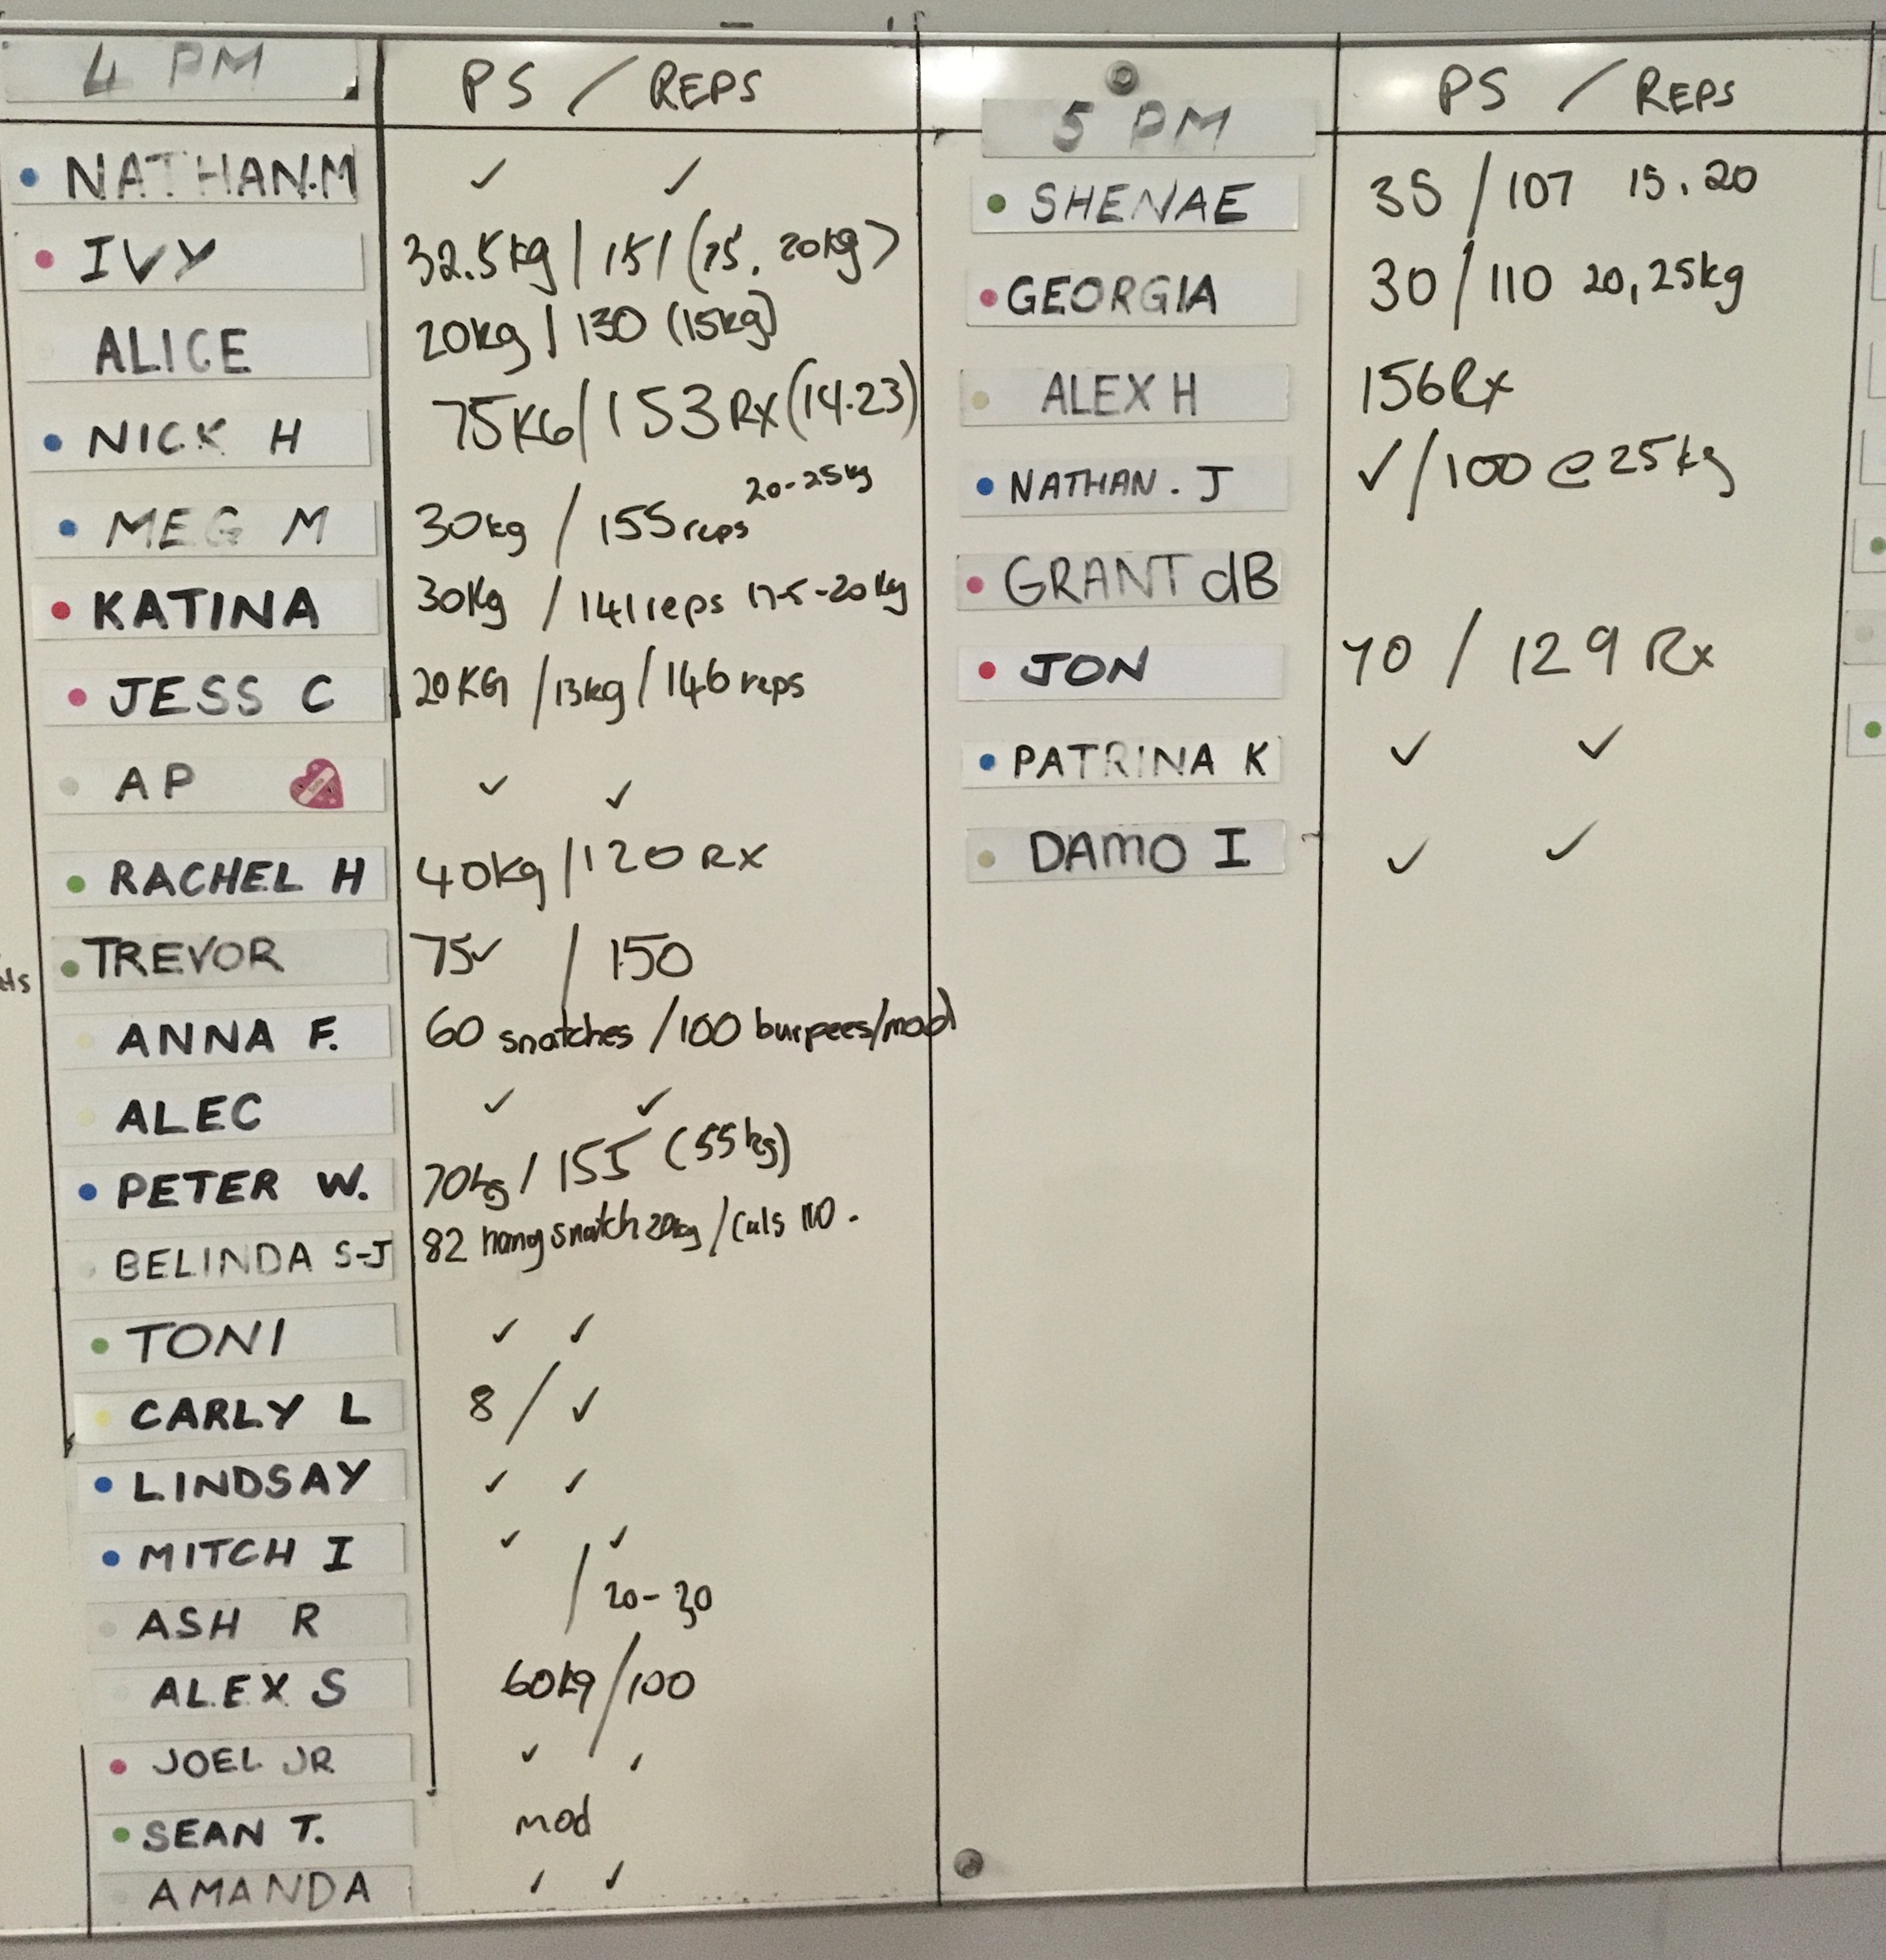 4 PM PS / REPS
NATHAN.M ✓ ✓
IVY 32.5kg / 151 (15, 20kg)
ALICE 20kg / 130 (15kg)
NICK H 75KG / 153 RX (14.23)
MEG M 30kg / 155 reps 20-25kg
KATINA 30kg / 141 reps 17.5-20kg
JESS C 20KG / 13kg / 146 reps
AP ✓ ✓
RACHEL H 40kg / 120 RX
TREVOR 75✓ / 150
ANNA F. 60 snatches / 100 burpees/mod
ALEC ✓ ✓
PETER W. 70kg / 155 (55kg)
BELINDA S-J 82 hang snatch 20kg / Cals 110.
TONI ✓ ✓
CARLY L 8 / ✓
LINDSAY ✓ ✓
MITCH I ✓ ✓
ASH R / 20-30
ALEX S 60kg / 100
JOEL JR ✓ ✓
SEAN T. mod
AMANDA ✓ ✓
5 PM PS / REPS
SHENAE 35 / 107 15.20
GEORGIA 30 / 110 20,25kg
ALEX H 156 Rx
NATHAN.J ✓ / 100 @ 25kg
GRANT dB
JON 70 / 129 Rx
PATRINA K ✓ ✓
DAMO I ✓ ✓